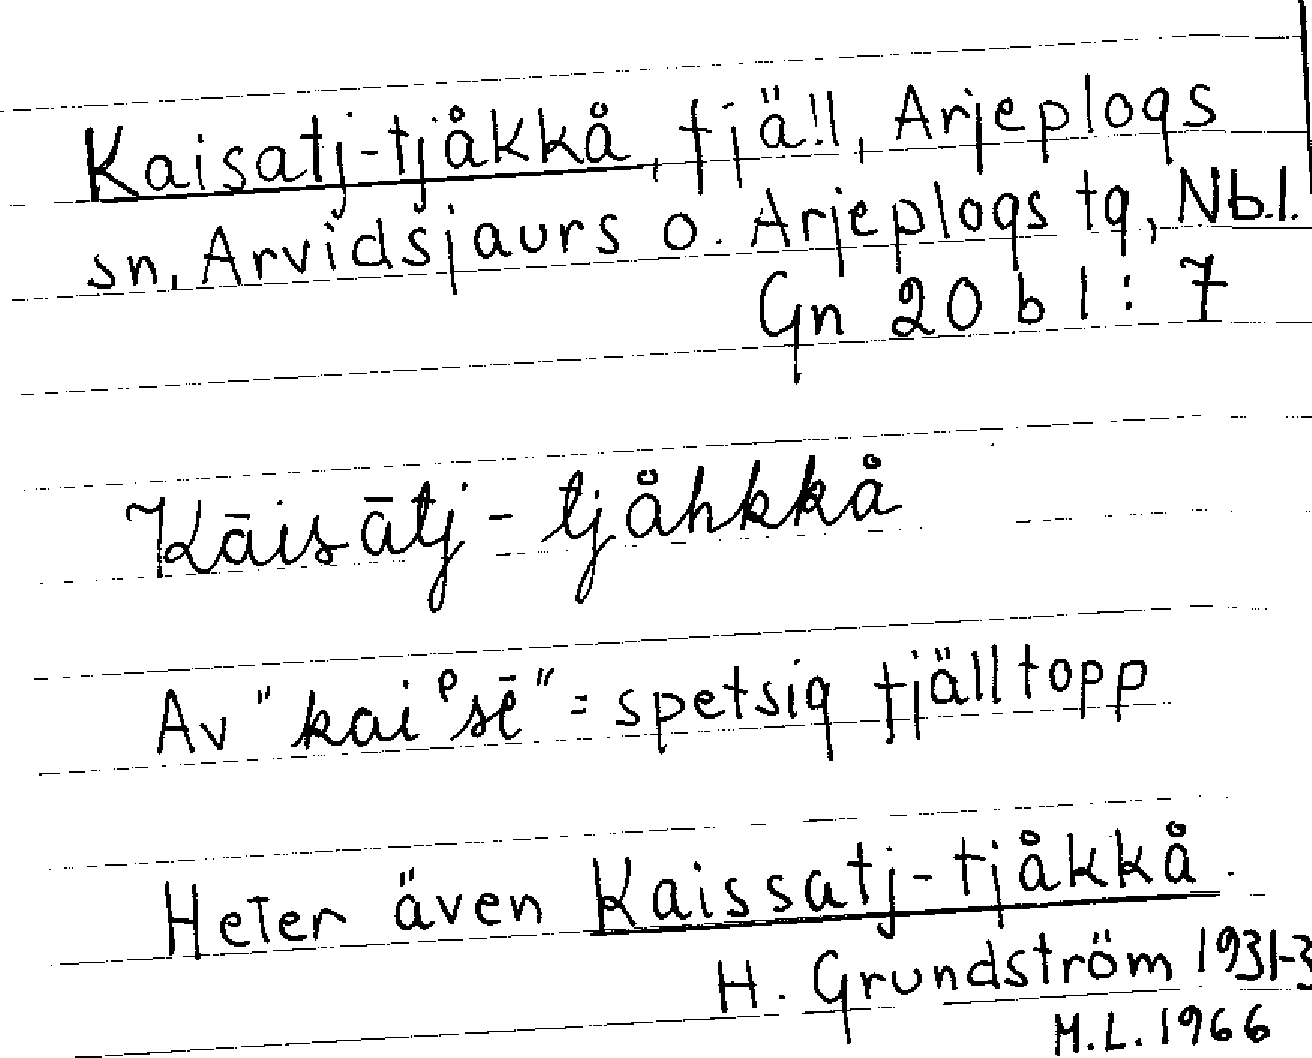 Kaisatj-tjåkkå, fjäll, Arjeplogs
sn, Arvidsjaurs o. Arjeplogs tg, Nb.l.
Gn 20 b l : 7
Kāisātj - tjåhkkå
Av "kaiᵉsē" = spetsig fjälltopp
Heter även Kaissatj-tjåkkå.
H. Grundström 1931-3
M.L. 1966